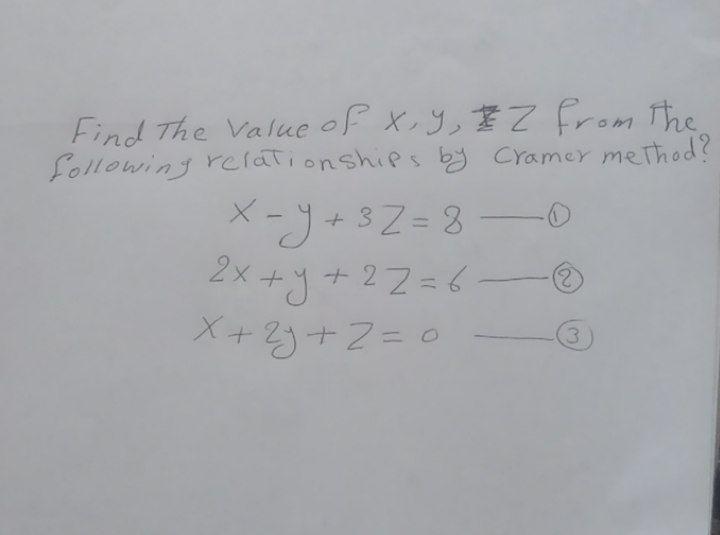 Find The Value of X, y, Z from The
following relationships by Cramer method?
X - y + 3Z = 8 — ①
2x + y + 2Z = 6 — ②
X + 2y + Z = 0 — ③